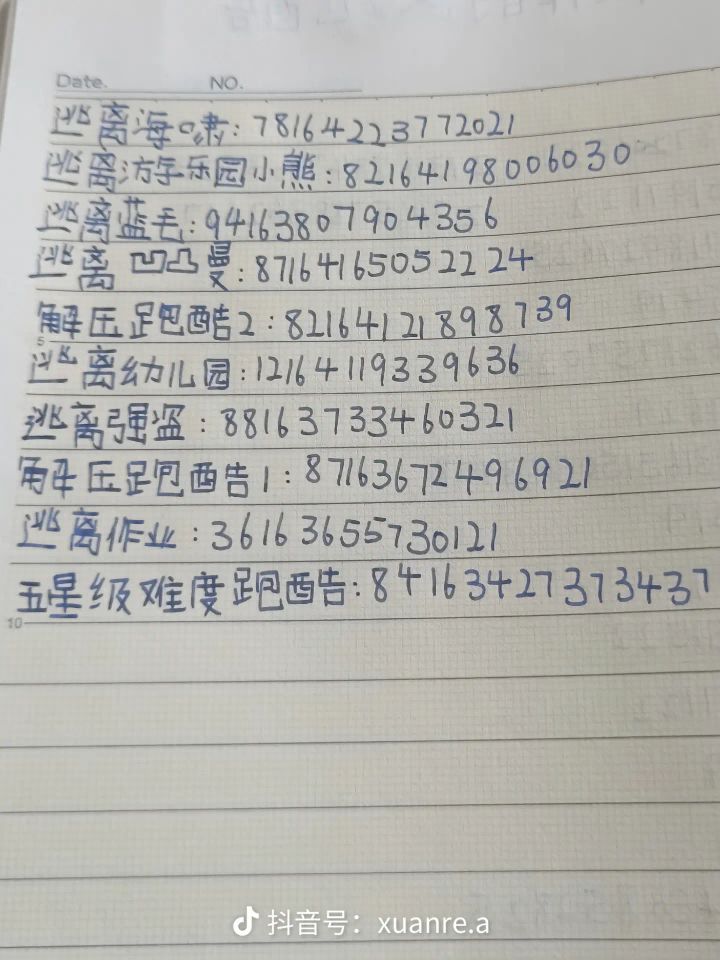 Date. NO.
逃离海啸：78164223772021
逃离游乐园小熊：82164198006030
逃离蓝毛：94163807904356
逃离凹凸曼：87164165052224
解压跑酷2：82164121898739
5
逃离幼儿园：12164119339636
逃离强盗：88163733460321
解压跑酷1：87163672496921
逃离作业：36163655730121
五星级难度跑酷：84163427373437
10
抖音号：xuanre.a